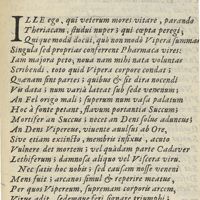 ILLE ego, qui veterum mores vitare, parando
Theriacam, studui nuper; qui cœpta peregi;
Qui quo modo docui, quò non modò Vipera summat
Singula sed proprias conferrent Pharmaca vires:
Iam majora peto; nova nam mihi nata voluntas
Scribendi, toto quid Vipera corpore condat:
Quænam sint partes; quibus & sit dira nocendi
Vis data; num varià lateat sub sede venenum;
An Fel origo mali; superum num vasa palatum
Hoc à fonte petant, flavum portantia Succum;
Mortifer an Succus; necet an Dens solus aduncus;
An Dens Vipereus, vivente avulsus ab Ore,
Sive etiam extincto, membris infixus, acuto
Vulnere det mortem; vel quædam parte Cadaver
Lethiferum; damnosa aliquo vel Viscera viru.
Nec satis hoc nobis; sed causam nosse veneni
Mens fuit; arcanas simul & reperire meatus,
Per quos Vipereum, supremam corporis arcem,
Virus adit, sedemque feri, signare triumphi;